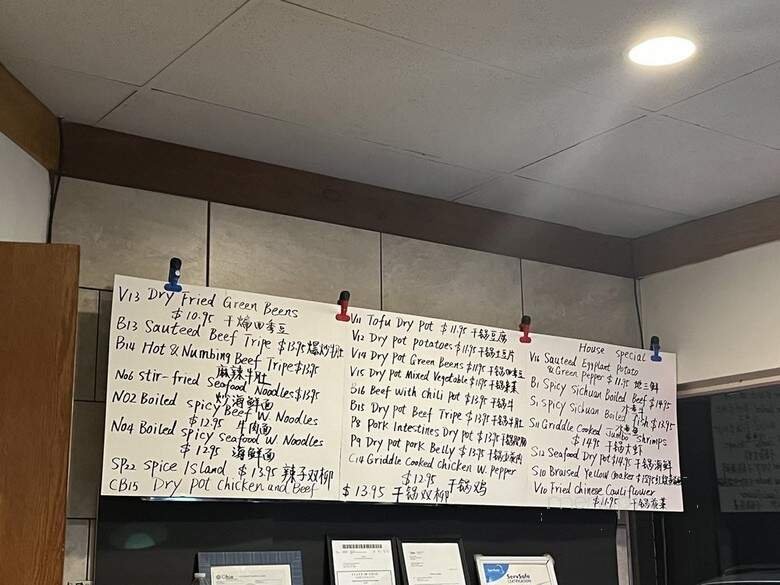 V13 Dry Fried Green Beens
$10.95 干煸四季豆
B13 Sauteed Beef Tripe $13.95 爆炒牛肚
B14 Hot & Numbing Beef Tripe $13.95
麻辣牛肚
N06 Stir-fried Seafood Noodles $13.95
炒海鲜面
N02 Boiled spicy Beef W. Noodles
$12.95 牛肉面
N04 Boiled spicy Seafood W. Noodles
$12.95 海鲜面
SP22 Spice Island $13.95 辣子双柳
CB15 Dry pot chicken and Beef
$13.95 干锅双柳
V11 Tofu Dry Pot $11.95 干锅豆腐
V12 Dry pot potatoes $11.95 干锅土豆片
V14 Dry pot Green Beens $11.95 干锅四季豆
V15 Dry pot Mixed Vegetable $11.95 干锅素菜
B16 Beef with chili pot $13.95 干锅牛
B15 Dry pot Beef Tripe $13.95 干锅牛肚
P8 pork Intestines Dry pot $13.95 干锅肥肠
P9 Dry pot pork Belly $13.95 干锅
C14 Griddle Cooked chicken W. Pepper
$12.95 干锅鸡
House Special
V16 Sauteed Eggplant Potato
& Green Pepper $11.95 地三鲜
B1 Spicy Sichuan Boiled Beef $14.95
水煮牛
S1 Spicy Sichuan Boiled fish $13.95
水煮鱼
S11 Griddle Cooked Jumbo shrimps
$14.95 干锅大虾
S12 Seafood Dry pot $14.95 干锅海鲜
S10 Braised Yellow Croaker $15.95
V10 Fried Chinese Cauliflower
$11.95 干锅花菜
ServSafe
CERTIFICATION